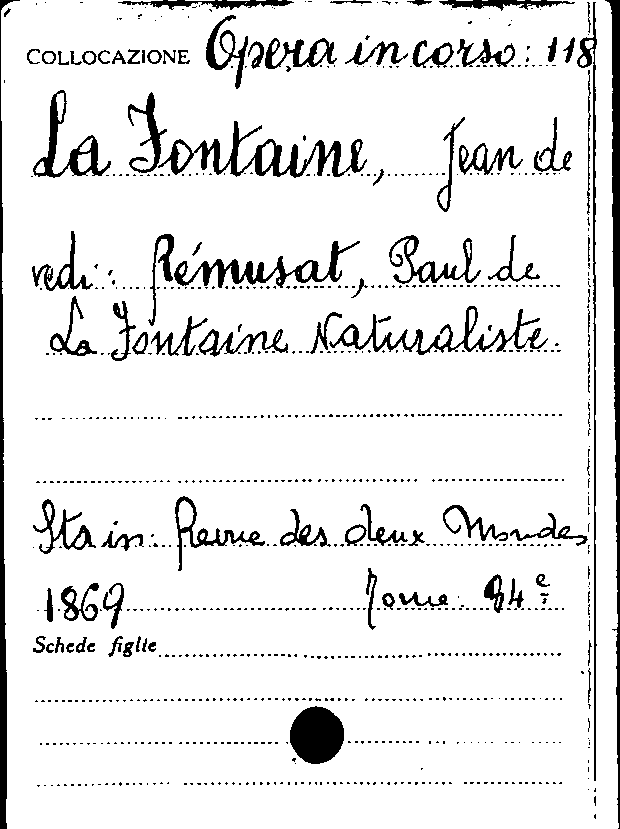 COLLOCAZIONE Opera in corso: 118
La Fontaine, Jean de
vedi: Rémusat, Paul de
La Fontaine Naturaliste.
Sta in: Revue des deux Mondes,
1869 Tome: 84e
Schede figlie